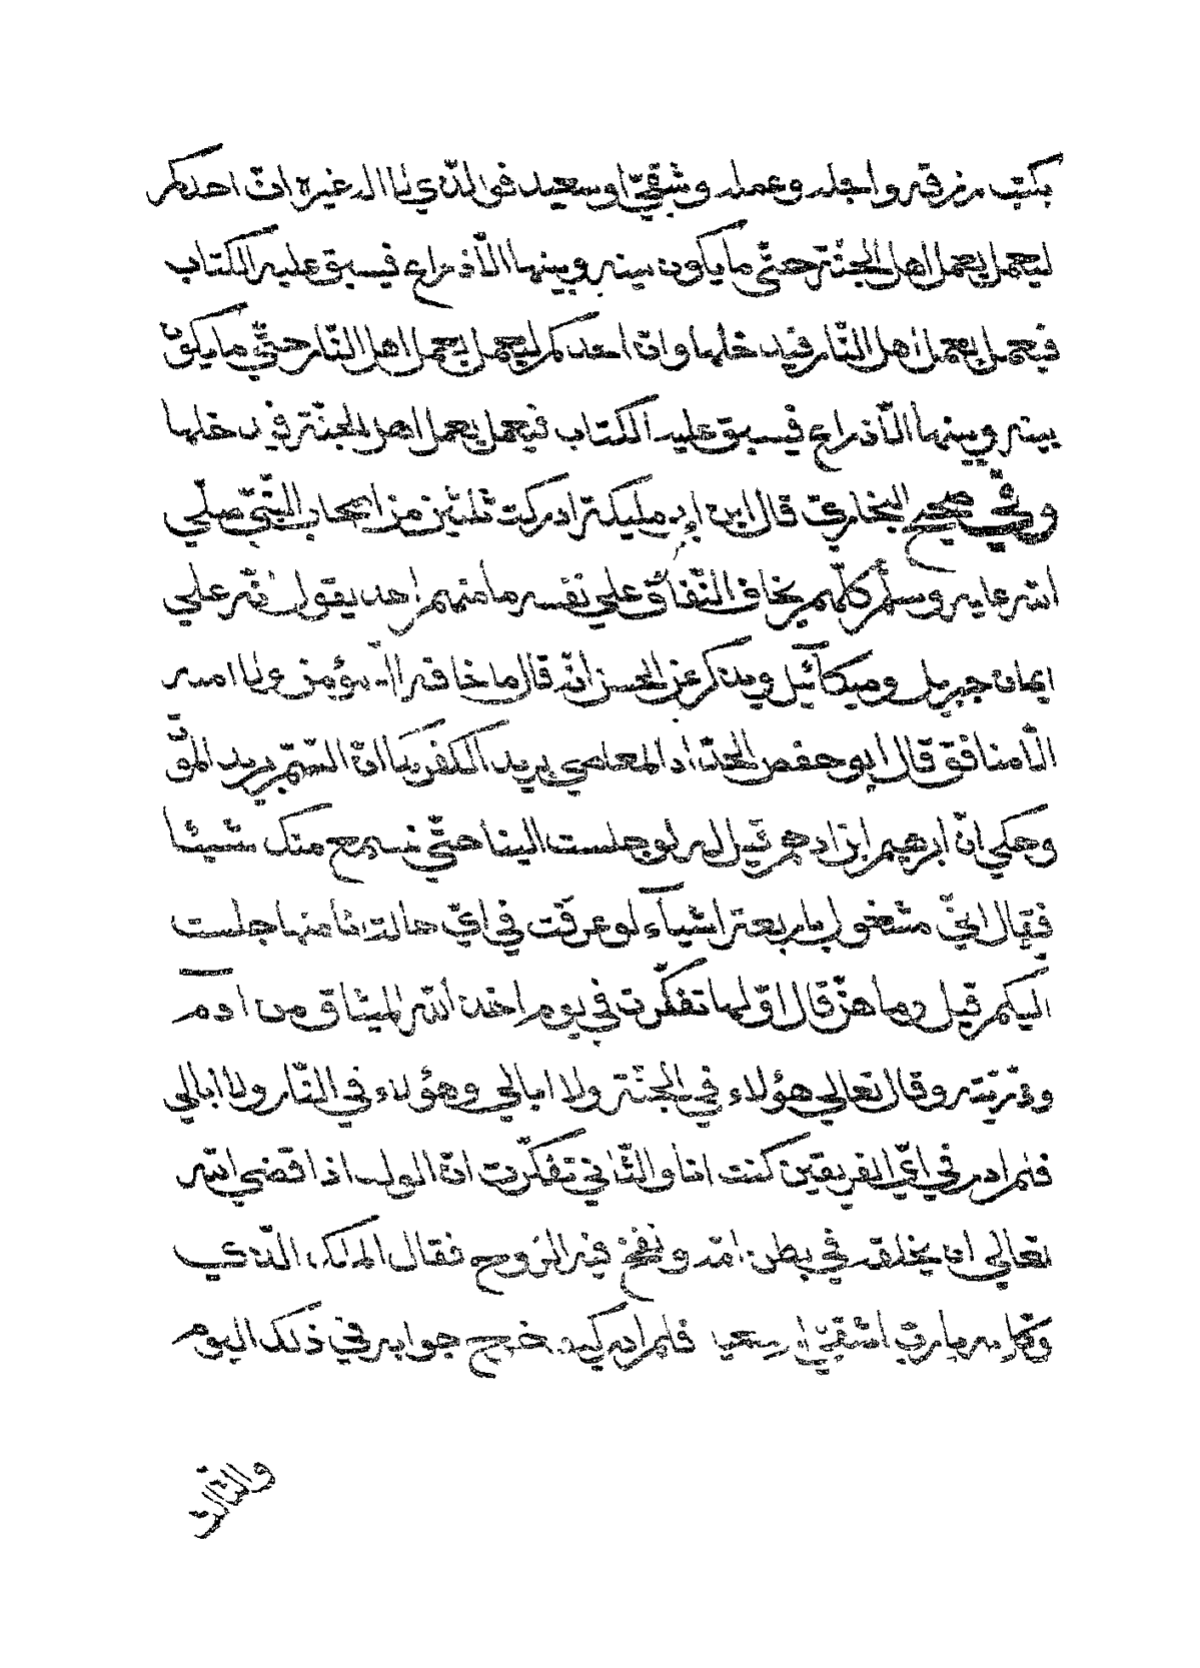 بكتب رزقه واجله وعمله وشقيّ او سعيد فو الّذي لا اله غيره انّ احدكم
ليعمل بعمل اهل الجنّة حتّي ما يكون بينه وبينها الّا ذراع فيسبق عليه الكتاب
فيعمل بعمل اهل النّار فيدخلها وان احدكم ليعمل بعمل اهل النّار حتّي ما يكون
بينه وبينها الّا ذراع فيسبق عليه الكتاب فيعمل بعمل اهل الجنّة فيدخلها
وفي صحيح البخاريّ قال ابن ابي مليكة ادركت ثلثين من اصحاب النّبيّ صلّي
الله عليه وسلّم كلّهم يخاف النّفاق علي نفسه ما منهم احد يقول انّه علي
ايمان جبريل وميكآئيل ويذكر عن الحسن انّه قال ما خافه الّا مؤمن ولا امنه
الّا منافق قال ابو حفص الحدّاد المعاصي بريد الكفر كما انّ السّمّ بريد الموت
وحكي انّ ابرهيم ابن ادهم قيل له لو جلست الينا حتّي نسمع منك شيئا
فقال انّي مشغول باربعة اشيآء لو عرفت في ايّ حالة انا منها جلست
اليكم قيل وما هنّ قال اوّلها تفكّرت في يوم اخذ الله الميثاق من آدم
وذرّيّته وقال تعالي هؤلاء في الجنّة ولا ابالي وهؤلاء في النّار ولا ابالي
فلم ادر في ايّ الفريقين كنت انا والثّاني تفكّرت انّ الولد اذا قضي الله
تعالي ان يخلقه في بطن امّه ونفخ فيه الرّوح فقال الملك الّذي
وكل به يا ربّ اشقيّ ام سعيد فلم ادر كيف خرج جوابه في ذلك اليوم
والثالث